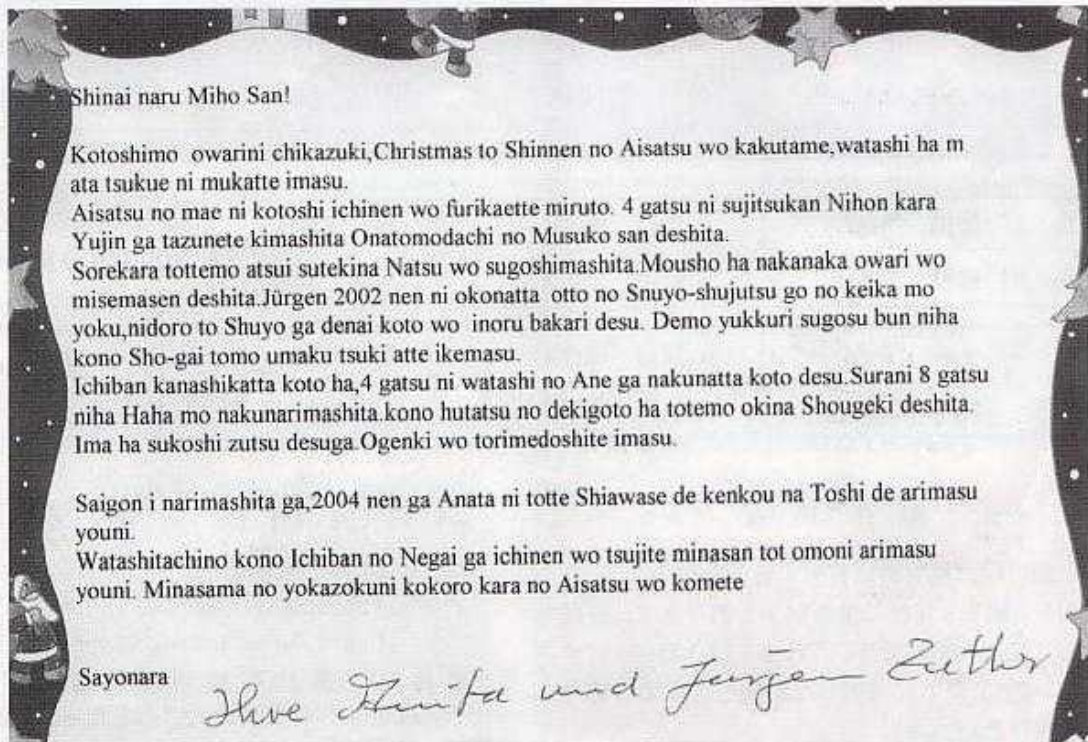 Shinai naru Miho San!
Kotoshimo owarini chikazuki,Christmas to Shinnen no Aisatsu wo kakutame,watashi ha m
ata tsukue ni mukatte imasu.
Aisatsu no mae ni kotoshi ichinen wo furikaette miruto. 4 gatsu ni sujitsukan Nihon kara
Yujin ga tazunete kimashita Onatomodachi no Musuko san deshita.
Sorekara tottemo atsui sutekina Natsu wo sugoshimashita.Mousho ha nakanaka owari wo
misemasen deshita.Jürgen 2002 nen ni okonatta otto no Snuyo-shujutsu go no keika mo
yoku,nidoro to Shuyo ga denai koto wo inoru bakari desu. Demo yukkuri sugosu bun niha
kono Sho-gai tomo umaku tsuki atte ikemasu.
Ichiban kanashikatta koto ha,4 gatsu ni watashi no Ane ga nakunatta koto desu.Surani 8 gatsu
niha Haha mo nakunarimashita.kono hutatsu no dekigoto ha totemo okina Shougeki deshita.
Ima ha sukoshi zutsu desuga.Ogenki wo torimedoshite imasu.
Saigon i narimashita ga,2004 nen ga Anata ni totte Shiawase de kenkou na Toshi de arimasu
youni.
Watashitachino kono Ichiban no Negai ga ichinen wo tsujite minasan tot omoni arimasu
youni. Minasama no yokazokuni kokoro kara no Aisatsu wo komete
Sayonara
Ihre Anita und Jürgen